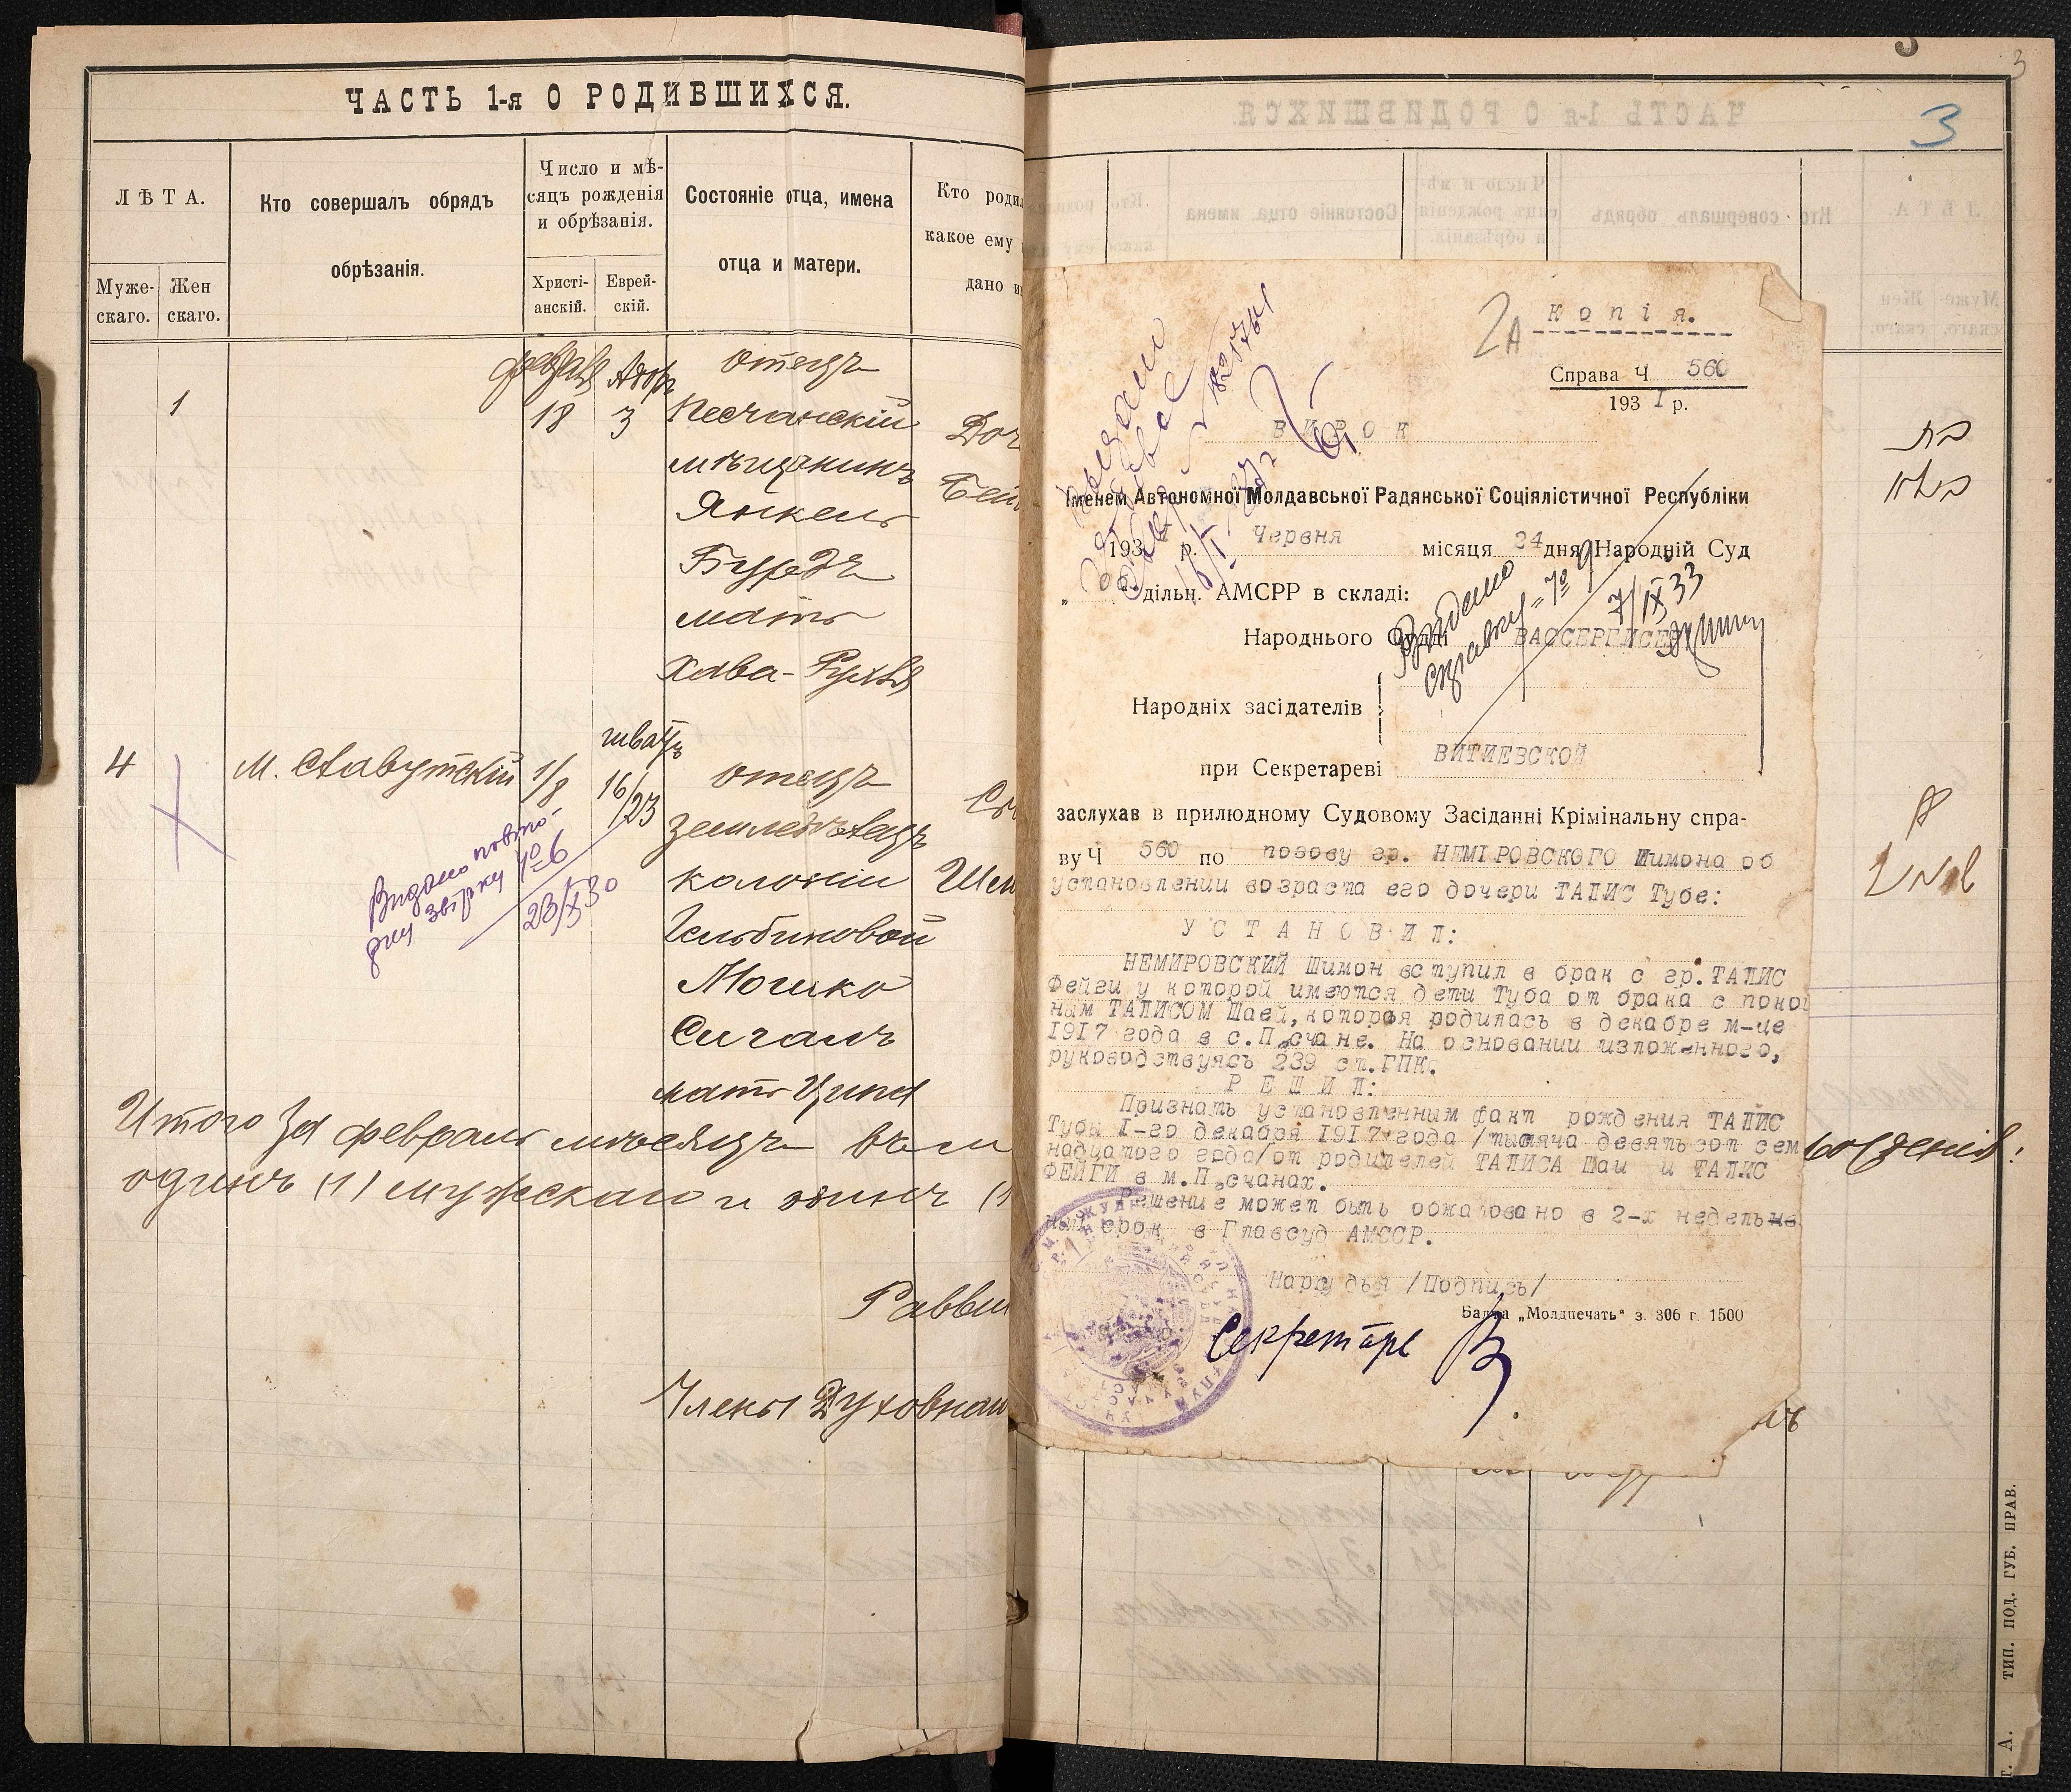 ЧАСТЬ 1-я О РОДИВШИХСЯ.
ЛѢТА.
Муже-
скаго.
Жен
скаго.
Кто совершалъ обрядъ
обрѣзанія.
Число и мѣ-
сяцъ рожденія
и обрѣзанія.
Христі-
анскій.
Еврей-
скій.
Состояніе отца, имена
отца и матери.
Кто роди
какое ему
дано и
1
18
3
отецъ
Песчанскій
мѣщанинъ
Янкель
Бурдъ
мать
Хава-Рухля
Доч
Бей
4
М. Славутскій
1/8
шватъ
16/23
отецъ
земледѣлецъ
колоніи
Гельбиновой
Мошко
Сигалъ
мать Ципа
Шм
Видано повто-
рну звірку №6
23/X 30
Итого за февраль мѣсяцъ
одинъ (1) мужескаго и одинъ (1
Равви
Члены Духовнаго
3
3
בת
ЧАСТЬ 1-я О РОДИВШИХСЯ
2А
Копія.
Справа Ч 560
193 1 р.
ВИРОК
Іменем Автономної Молдавської Радянської Соціялістичної Республіки
193 р. Червня місяця 24 дня Народній Суд
дільн. АМСРР в складі:
Народнього Судді ВАССЕРГИСЕР
Видано
справку №9
7/IX 33
Народніх засідателів
при Секретареві ВИТИЕВСКОЙ
заслухав в прилюдному Судовому Засіданні Крімінальну спра-
ву Ч 560 по позову гр. НЕМІРОВСКОГО Шимона об
установлении возраста его дочери ТАЛИС Тубе:
УСТАНОВИЛ:
НЕМИРОВСКИЙ Шимон вступил в брак с гр.ТАЛИС
Фейги у которой имеются дети Туба от брака с покой
ным ТАЛИСОМ Шаей, которая родилась в декабре м-це
1917 года в с.Песчане. На основании изложенного,
руководствуясь 239 ст.ГПК.
РЕШИЛ:
Признать установленным факт рождения ТАЛИС
Тубы 1-го декабря 1917 года /тысяча девятьсот сем
надцатого года/от родителей ТАЛИСА Шаи и ТАЛИС
ФЕЙГИ в м.Песчанах.
Решение может быть обжаловано в 2-х недельне
ный срок в Главсуд АМССР.
Нарсудья /Подпись/
Балта „Молдпечать“ з. 306 г. 1500
Секретарь
Т. А. ТИП. ПОД. ГУБ. ПРАВ.